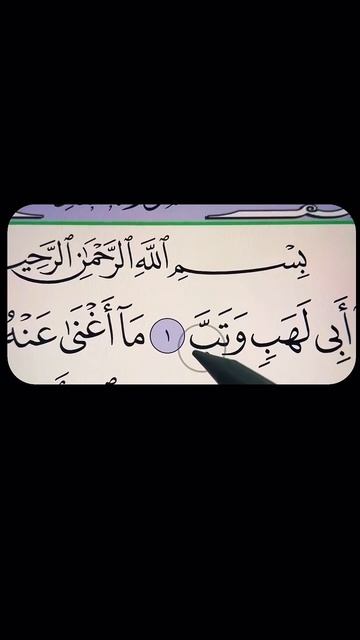 بِسْمِ ٱللَّهِ ٱلرَّحْمَٰنِ
أَبِى لَهَبٍ وَتَبَّ ١ مَآ أَغْنَىٰ عَنْهُ